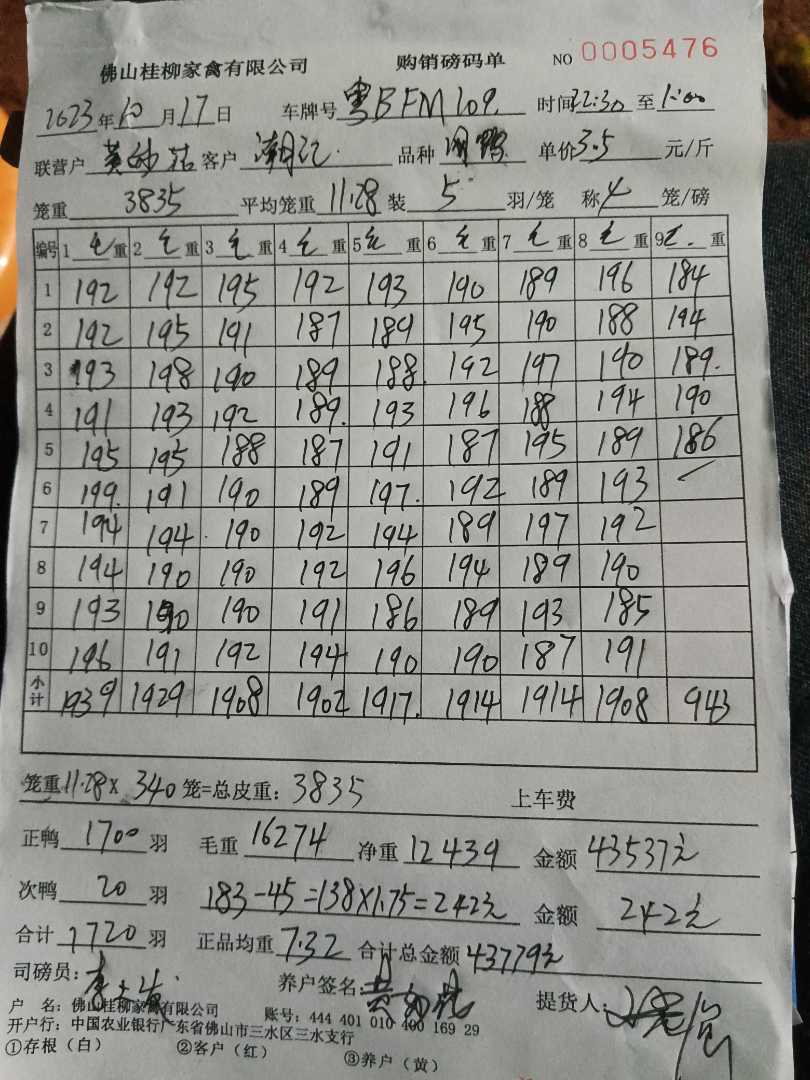 佛山桂柳家禽有限公司 购销磅码单 NO 0005476
2023年10月17日 车牌号粤BFM109. 时间22:30至1:00
联营户黄 客户潮江 品种 单价3.5元/斤
笼重3835平均笼重11.28装5羽/笼 称4笼/磅
编号 1毛重 2毛重 3毛重 4毛重 5毛重 6毛重 7毛重 8毛重 9毛重
1 192 192 195 192 193 190 189 196 184
2 192 195 191 187 189 195 190 188 194
3 193 198 190 189 188. 192 197 190 189.
4 191 193 192 189. 193 196 188 194 190
5 195 195 188 187 191 187 195 189 186
6 199. 191 190 189 197. 192 189 193
7 194 194 190 192 194 189 197 192
8 194 190 190 192 196 194 189 190
9 193 190 190 191 186 189 193 185
10 196 191 192 194 190 190 187 191
小计 1939 1929 1908 1902 1917. 1914 1914 1908 943
笼重11.28×340笼=总皮重：3835 上车费
正鸭1700羽 毛重16274 净重12439 金额43537元
次鸭20羽 183-45=138×1.75=242元 金额242元
合计1720羽 正品均重7.32 合计总金额43779元
司磅员： 养户签名：黄 提货人：
户 名：佛山桂柳家禽有限公司 账号：444 401 010 400 169 29
开户行：中国农业银行广东省佛山市三水区三水支行
①存根（白） ②客户（红） ③养户（黄）